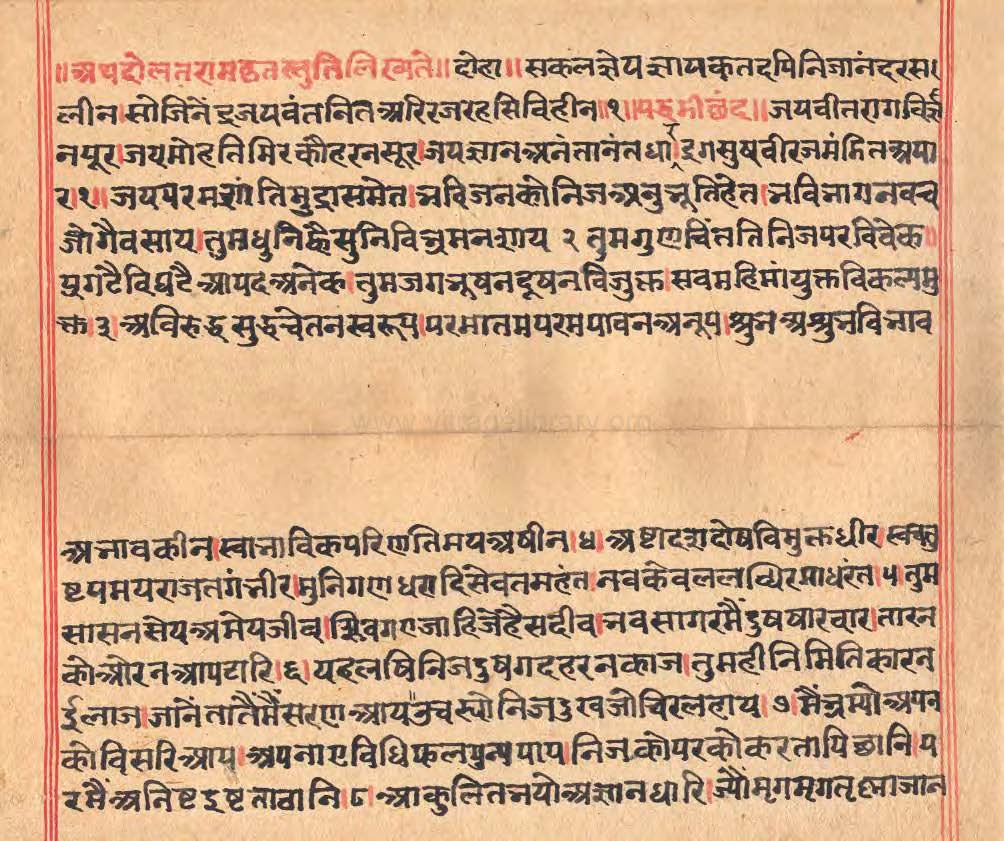 ॥अथ दौलतरामकृतस्तुति लिख्यते॥ दोहा॥ सकलज्ञेयज्ञायकतदपिनिजानंदरस
लीन।सोजिनेंद्रजयवंतनितअरिरजरहसिविहीन॥१॥पद्धमीछंद॥जयवीतरागविज्ञा
नपूर।जयमोहतिमिरकौहरनसूर।जयज्ञानअनंतानंतधार।द्रगसुषवीरजमंडितअपा
र।१॥जयपरमशांतिमुद्रासमेत।भविजनकोनिजअनुभूतिहेत।भविभागनवच
जोगैवसाय।तुमधुनिह्वैसुनिविभ्रमनशाय २ तुमगुणचिंततिनिजपरविवेक॥
प्रगटैविघटैआपदअनेक।तुमजगभूषनदूषनविजुक्त।सवमहिमांयुक्तविकल्पमु
क्त।३।अविरुद्धसुद्धचेतनस्वरूप।परमातमपरमपावनअनूप।शुभअशुभविभाव
www.vitragelibrary.org
अभावकीन।स्वाभाविकपरिणतिमयअषीन।४।अष्टादशदोषविमुक्तधीर।स्वचतु
ष्टयमयराजतगंभीर।मुनिगणधरादिसेवतमहंत।नवकेवललब्धिरमाधरंत।५।तुम
सासनसेयअमेयजीव।शिवगएजाहिंजैहैसदीव।भवसागरमैंदुषषारवार।तारन
कोऔरनआपटारि।६।यहलषिनिजदुषगदहरनकाज।तुमहीनिमितिकारन
ईलाज।जांनैतातैंमैंसरणआयउचस्योनिजदुखजोचिरलहाय।७।मैंभ्रम्योअपन
कोविसरिआप।अपनाएविधिफलपुन्यपाप।निजकोपरकोकरतापिछानि।प
रमैंअनिष्टइष्टताठानि।८।आकुलितभयोअज्ञानधारि।ज्यौंमृगमृगतृष्नाजान